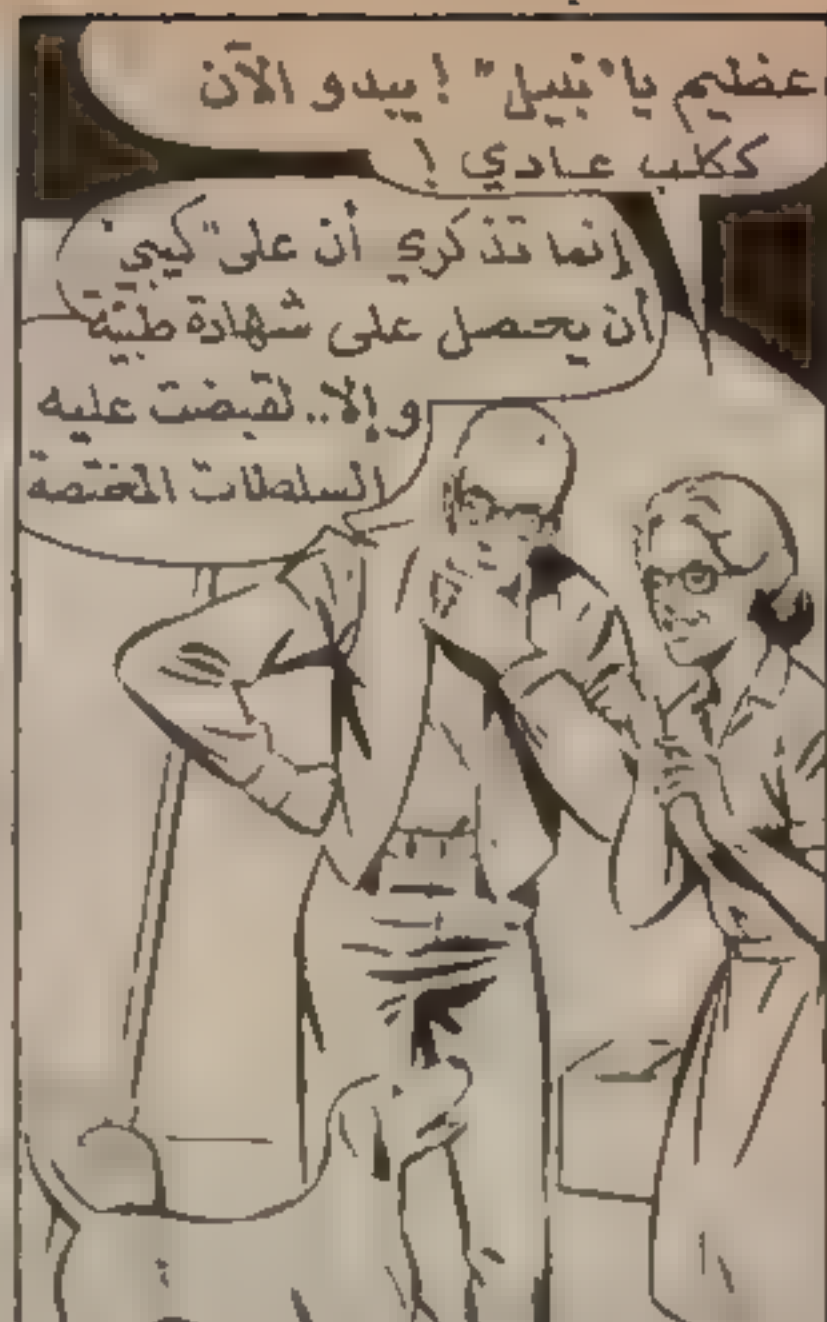 عظيم يا "نبيل" ! يبدو الآن
ككلب عادي !
إنما تذكري أن على "كيبي"
أن يحصل على شهادة طبيّة
و إلا.. لقبضت عليه
السلطات المختصة